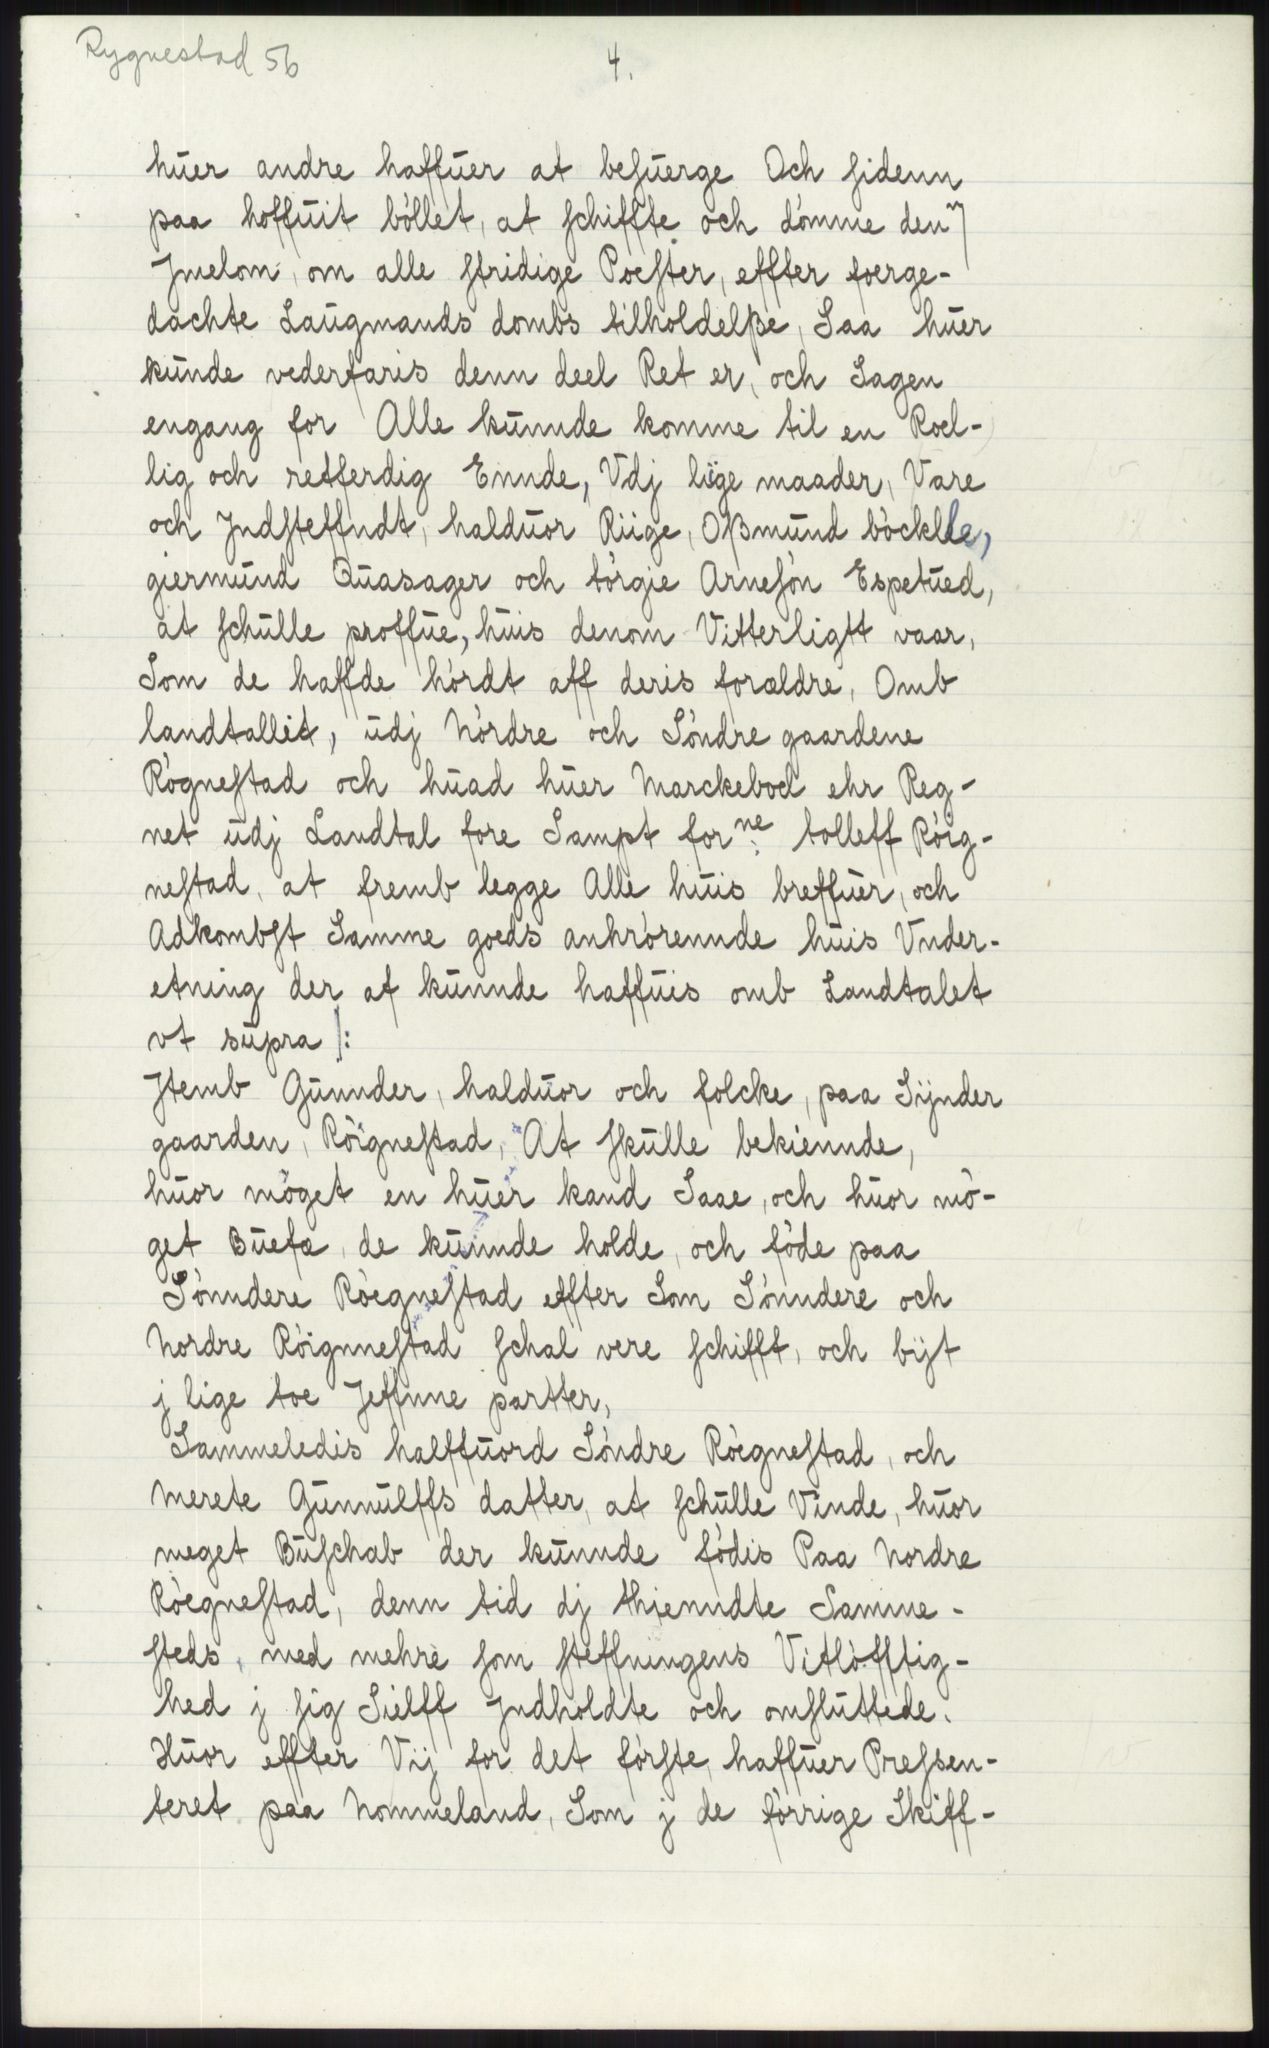 Rygnestad 56
4.
huer andre haffuer at besuerge Och sidenn
paa hoffuit böllet, at schiffte och dömme denn
Jmelom, om alle stridige Poester, effter foerge-
dachte Laugmands dombs tilholdelße, Saa huer
kunde vederfaris denn deel Ret er, och Sagen
engang for Alle kunnde komme til en Roe-
lig och retferdig Ennde, Vdj lige maader, Vare
och Jndsteffndt, halduor Riige, Oßmund böcklle,
giermund Quasager och törgie Arnesön Espetued,
at schulle proffue, huis denom Vitterligtt vaar,
Som de haffde hördt aff deris forældre, Omb
landtallit, udj Nördre och Söndre gaardene
Rögnestad och huad huer Marckebod ehr Reg-
net udj Landtal fore Sampt forne tolleff Röig-
nestad, at fremb legge Alle huis breffuer, och
Adkombst Samme goeds anhrörennde huis Vnder-
etning der af kunnde haffuis omb Landtalet
vt supra /:
Jtemb Gunnder, halduor och folcke, paa Sÿnder
gaarden, Röignestad, At skulle bekiennde,
huor möget en huer kand Saae, och huor mö-
get Buefæ, de kunnde holde, och föde paa
Sönndere Röegnestad effter Som Sönndere och
Nordre Röignnestad schal vere schifft, och bÿt
j lige toe Jeffnne partter,
Sammeledis halffuord Söndre Röegnestad, och
Merete Gunnulffs datter, at schulle Vinde, huor
meget Buschab der kunnde födis Paa Nordre
Röegnestad, denn tid dj thienndte Samme-
steds, med mehre som steffningens Vitlöfftig-
hed j sig Sielff Jndholdte och omsluttede.
Huor effter Vij for det förste, haffuer Pressen-
teret paa Nommeland, Som j de förrige Skiff-